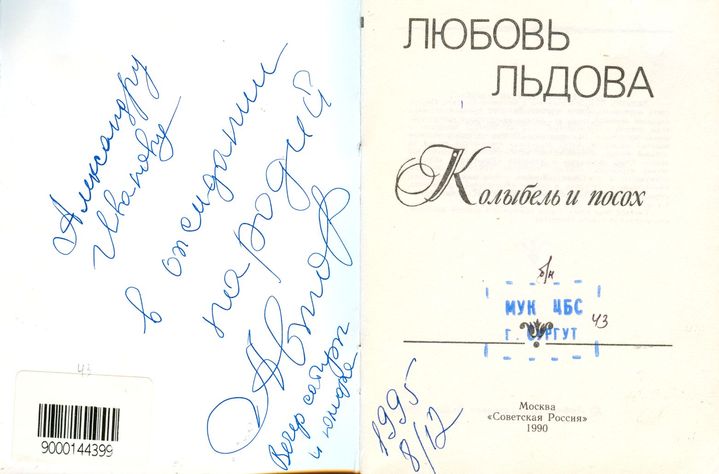 Александру
Иванову
в ожидании
пародий
Автор
Вечер сатиры
и юмора
43
9000144399
ЛЮБОВЬ
ЛЬДОВА
Колыбель и посох
б/н
МУК ЦБС
43
г. СУРГУТ
1995
8/12
Москва
«Советская Россия»
1990